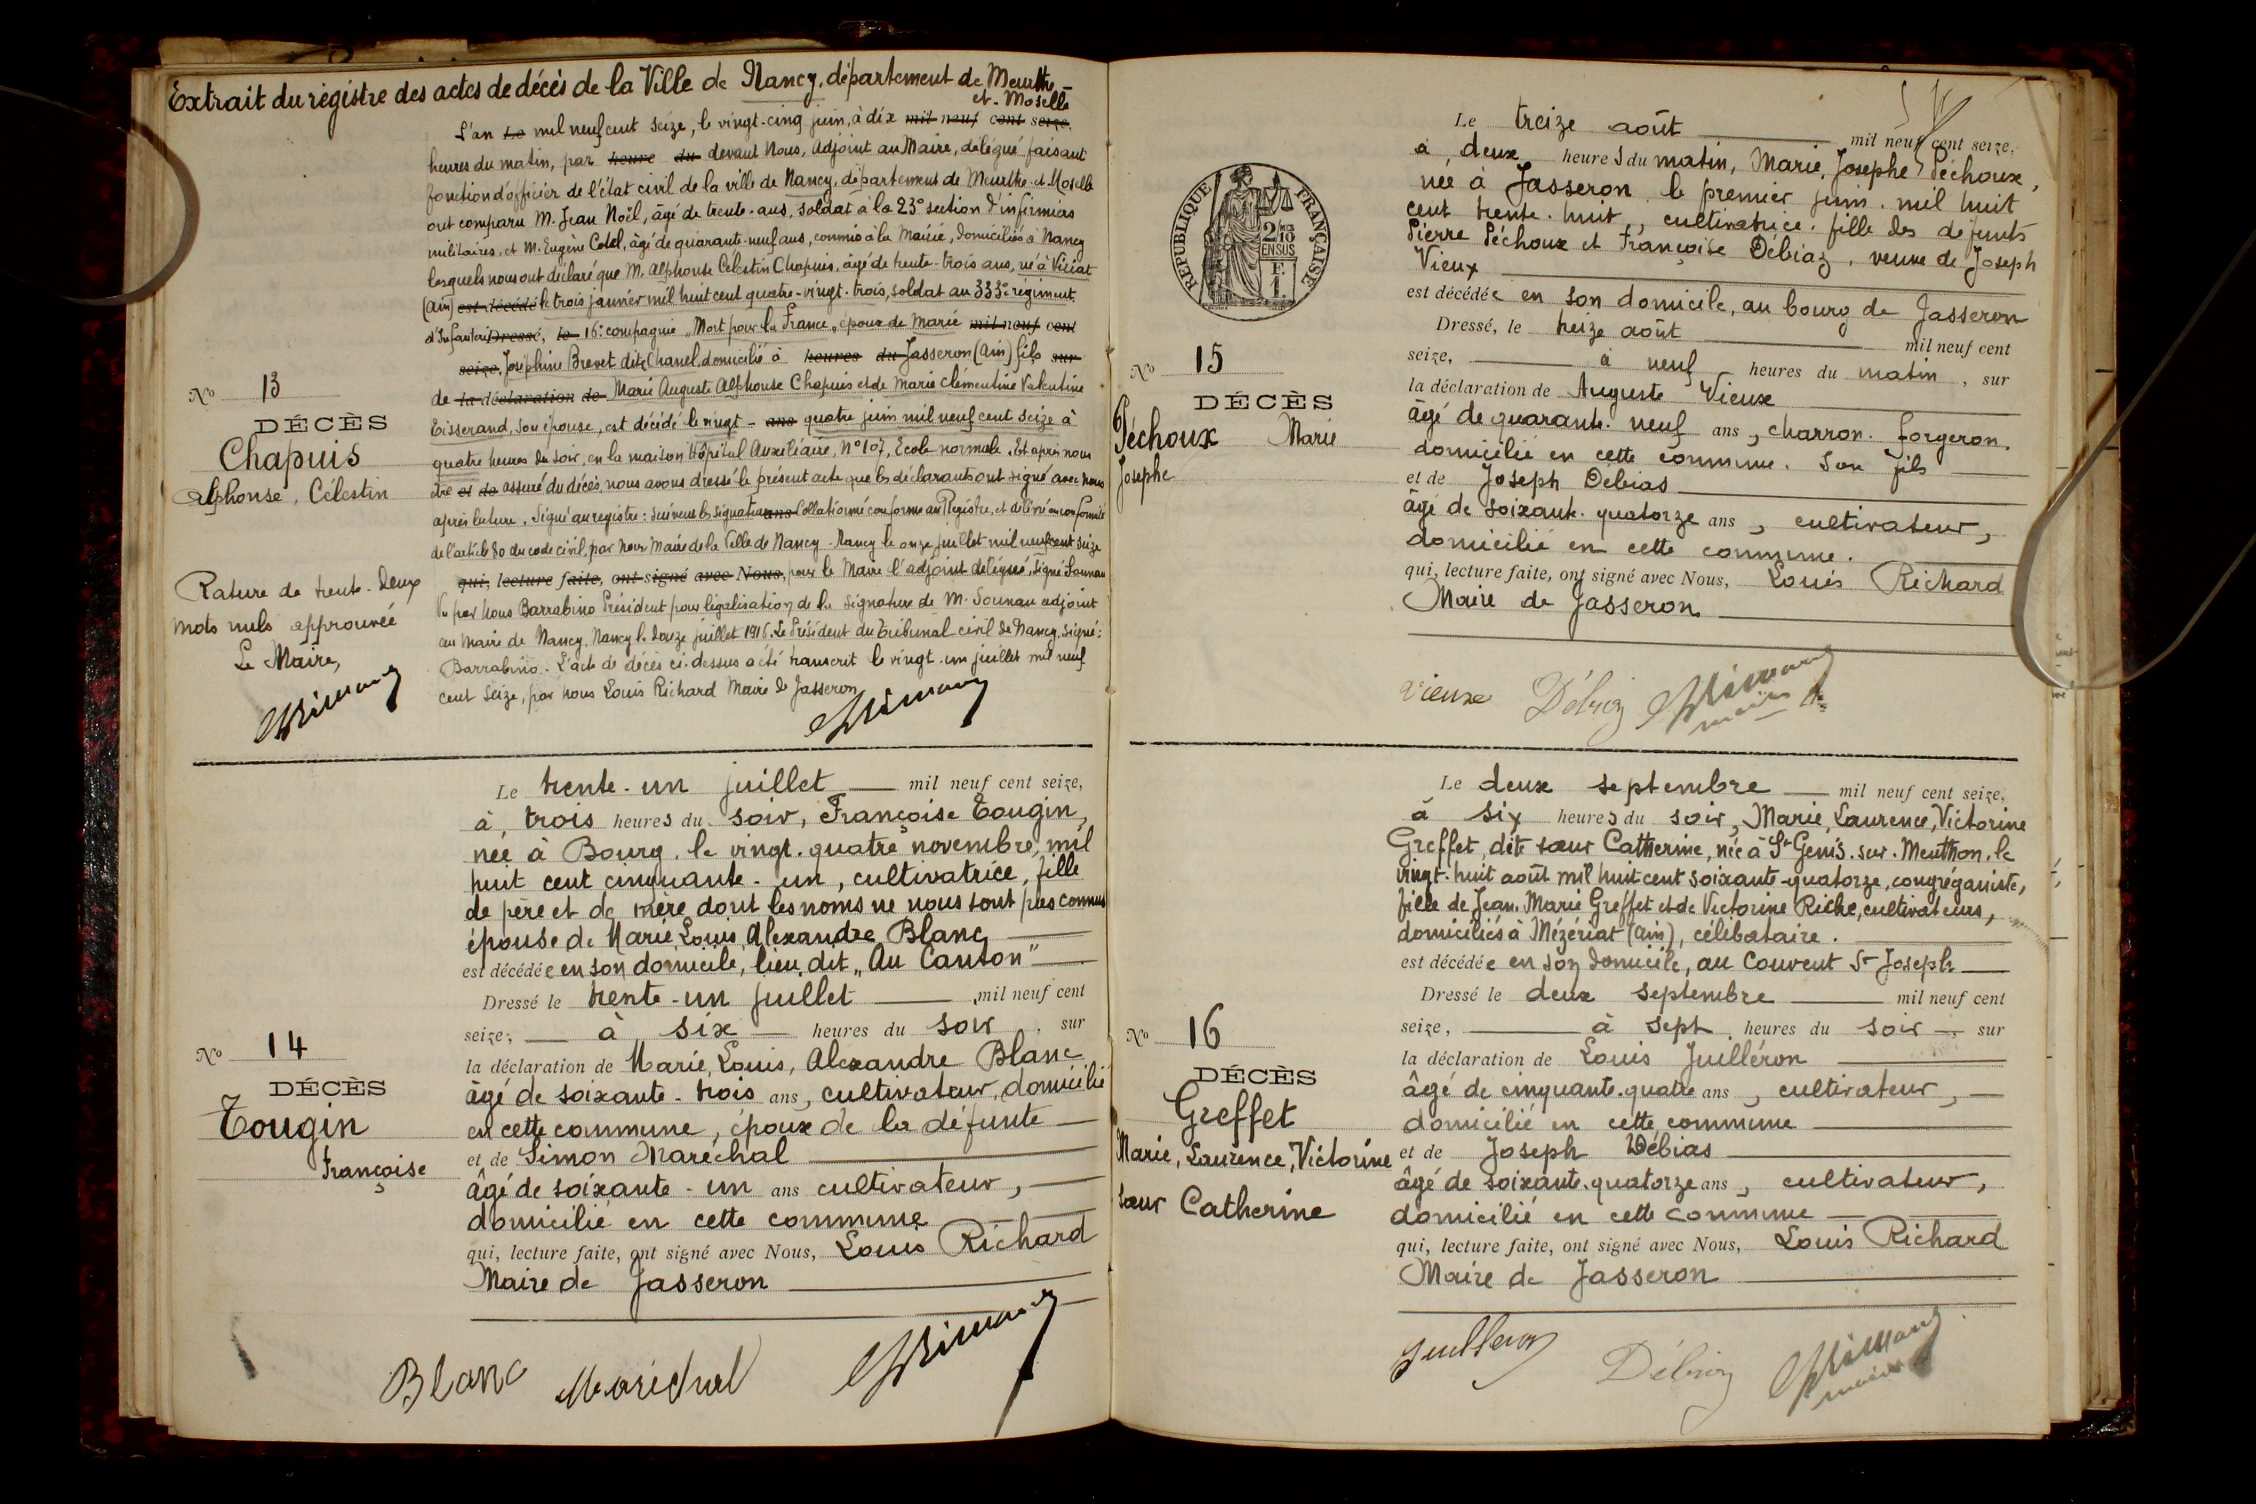 Extrait du registre des actes de décès de la Ville de Nancy, département de Meurthe
et-Moselle
L'an Le mil neuf cent seize, le vingt-cinq juin, à dix mil neuf cent seize,
heures du matin, par heure du devant Nous, Adjoint au Maire, délégué faisant
fonction d'officier de l'état civil de la ville de Nancy, département de Meurthe-et-Moselle
ont comparu M. Jean Noël, âgé de trente-ans, soldat à la 23e section d'infirmiers
militaires, et M. Eugène Colel, âgé de quarante-neuf ans, commis à la Mairie, domiciliés à Nancy
lesquels nous ont déclaré que M. Alphonse Célestin Chapuis, âgé de trente-trois ans, né à Viriat
(Ain) est décédé le trois janvier mil huit cent quatre-vingt-trois, soldat au 333e régiment
d'Infanterie Dressé, le 16e compagnie "Mort pour la France", époux de Marie mil neuf cent
seize, Joséphine Brevet dite Chanel domicilié à heures du Jasseron (Ain) fils sur
N° 13
DÉCÈS
Chapuis
Alphonse, Célestin
de la déclaration de Marie Auguste Alphonse Chapuis et de Marie Clémentine Valentine
Tisserand, son épouse, est décédé le vingt- ans quatre juin mil neuf cent seize à
quatre heures du soir, en la maison Hôpital Auxiliaire, N° 107, École normale. Et après nous
être et de assuré du décès, nous avons dressé le présent acte que les déclarants ont signé avec nous
après lecture. Signé au registre: suivent les signatures ans Collationné conforme au Registre, et délivré en conformité
de l'article 80 du code civil, par Nous Maire de la Ville de Nancy - Nancy le onze juillet mil neuf cent seize
qui, lecture faite, ont signé avec Nous, pour le Maire l'adjoint délégué, signé Sounau
Vu par Nous Barrabino Président pour légalisation de la signature de M. Sounau adjoint
au Maire de Nancy. Nancy le douze juillet 1916. Le Président du Tribunal civil de Nancy, signé:
Barrabino. L'acte de décès ci-dessus a été transcrit le vingt-un juillet mil neuf
cent seize, par nous Louis Richard Maire de Jasseron
Rature de trente-deux
mots nuls approuvée
Le Maire,
Le trente-un juillet mil neuf cent seize,
à trois heures du soir, Françoise Tougin,
née à Bourg, le vingt-quatre novembre, mil
huit cent cinquante-un, cultivatrice, fille
de père et de mère dont les noms ne nous sont pas connus
épouse de Marie, Louis, Alexandre Blanc
est décédée en son domicile, lieu dit "Au Canton"
Dressé le trente-un juillet mil neuf cent
seize, à six heures du soir, sur
N° 14
DÉCÈS
Tougin
Françoise
la déclaration de Marie, Louis, Alexandre Blanc
âgé de soixante-trois ans, cultivateur, domicilié
en cette commune, époux de la défunte
et de Simon Maréchal
âgé de soixante-un ans cultivateur,
domicilié en cette commune
qui, lecture faite, ont signé avec Nous, Louis Richard
Maire de Jasseron
Blanc Maréchal
RÉPUBLIQUE FRANÇAISE
2/10
EN SUS
F.
1.
Le treize août mil neuf cent seize,
à deux heures du matin, Marie, Josephe Péchoux,
née à Jasseron, le premier juin, mil huit
cent trente-huit, cultivatrice, fille des défunts
Pierre Péchoux et Françoise Débiaz, veuve de Joseph
Vieux
est décédée en son domicile, au bourg de Jasseron
Dressé, le treize août mil neuf cent
seize, à neuf heures du matin, sur
N° 15
DÉCÈS
Péchoux Marie
Josephe
la déclaration de Auguste Vieux
âgé de quarante-neuf ans, charron-forgeron,
domicilié en cette commune. Son fils
et de Joseph Débias
âgé de soixante-quatorze ans, cultivateur,
domicilié en cette commune.
qui, lecture faite, ont signé avec Nous, Louis Richard
Maire de Jasseron
Vieux Débiaz
maire
Le deux septembre mil neuf cent seize,
à six heures du soir, Marie, Laurence, Victorine
Greffet, dite sœur Catherine, née à St Genis-sur-Menthon, le
vingt-huit août mil huit cent soixante-quatorze, congréganiste,
fille de Jean-Marie Greffet et de Victorine Riche, cultivateurs,
domiciliés à Mézériat (Ain), célibataire.
est décédée en son domicile, au Couvent St Joseph
Dressé le deux septembre mil neuf cent
seize, à sept heures du soir, sur
N° 16
DÉCÈS
Greffet
Marie, Laurence, Victorine
sœur Catherine
la déclaration de Louis Juilléron
âgé de cinquante-quatre ans, cultivateur,
domicilié en cette commune
et de Joseph Débias
âgé de soixante-quatorze ans, cultivateur,
domicilié en cette commune
qui, lecture faite, ont signé avec Nous, Louis Richard
Maire de Jasseron
Juilleron Débiaz
maire